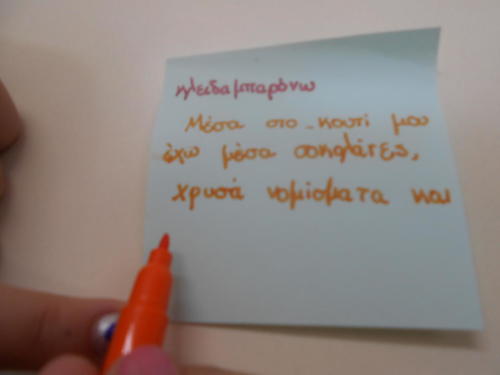 κλειδαμπαρόνω
Μέσα στο κουτί μου
έχω μέσα σοκολάτες,
χρυσά νομίσματα και